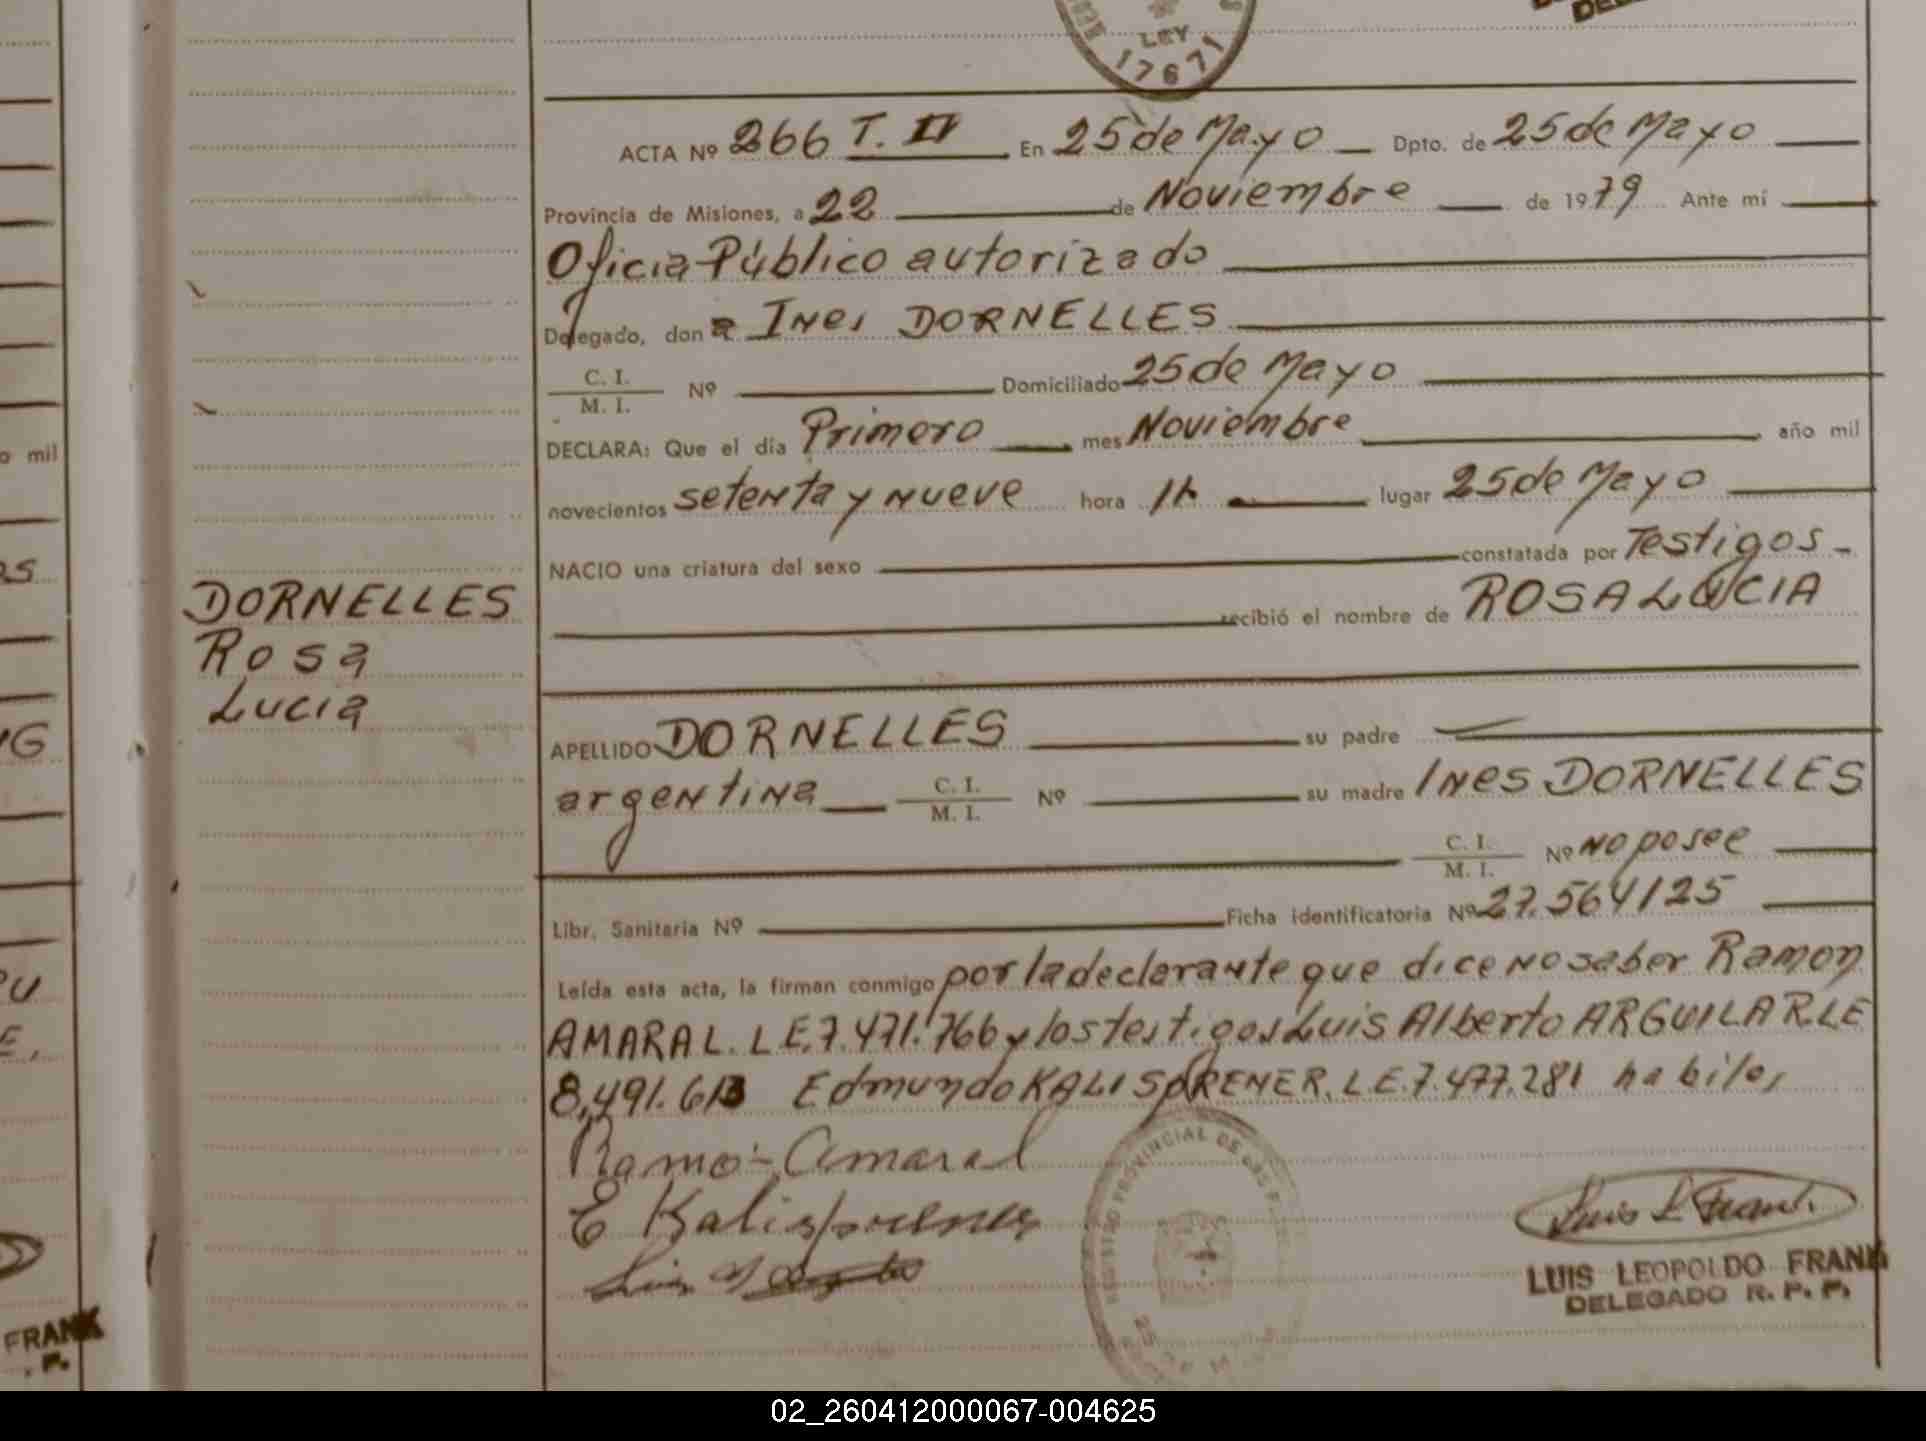 LEY
17671
ACTA Nº 266 T. II En 25 de Mayo Dpto. de 25 de Mayo
Provincia de Misiones, a 22 de Noviembre de 1979 Ante mí
Oficial Público autorizado
Delegado, don a Ines DORNELLES
C. I.
M. I. Nº Domiciliado 25 de Mayo
DECLARA: Que el día Primero mes Noviembre año mil
novecientos setenta y nueve hora 1h lugar 25 de Mayo
NACIO una criatura del sexo constatada por Testigos
recibió el nombre de ROSA LUCIA
DORNELLES
Rosa
Lucia
APELLIDO DORNELLES su padre
argentina C. I.
M. I. Nº su madre Ines DORNELLES
C. I.
M. I. Nº no posee
Libr. Sanitaria Nº Ficha identificatoria Nº 27.564125
Leída esta acta, la firman conmigo por la declarante que dice no saber Ramon
AMARAL. L E. 7.471.766 y los testigos Luis Alberto ARGUILAR. LE
8,491.613 Edmundo KALISPRENER. L E. 7.477.281 habiles
Ramo- Amaral
E Kalisprener
REGISTRO PROVINCIAL DE LAS
Luis L Frank
LUIS LEOPOLDO FRANK
DELEGADO R. P. P.
o mil
os
NG
RU
E,
FRANK
. P.
02_260412000067-004625